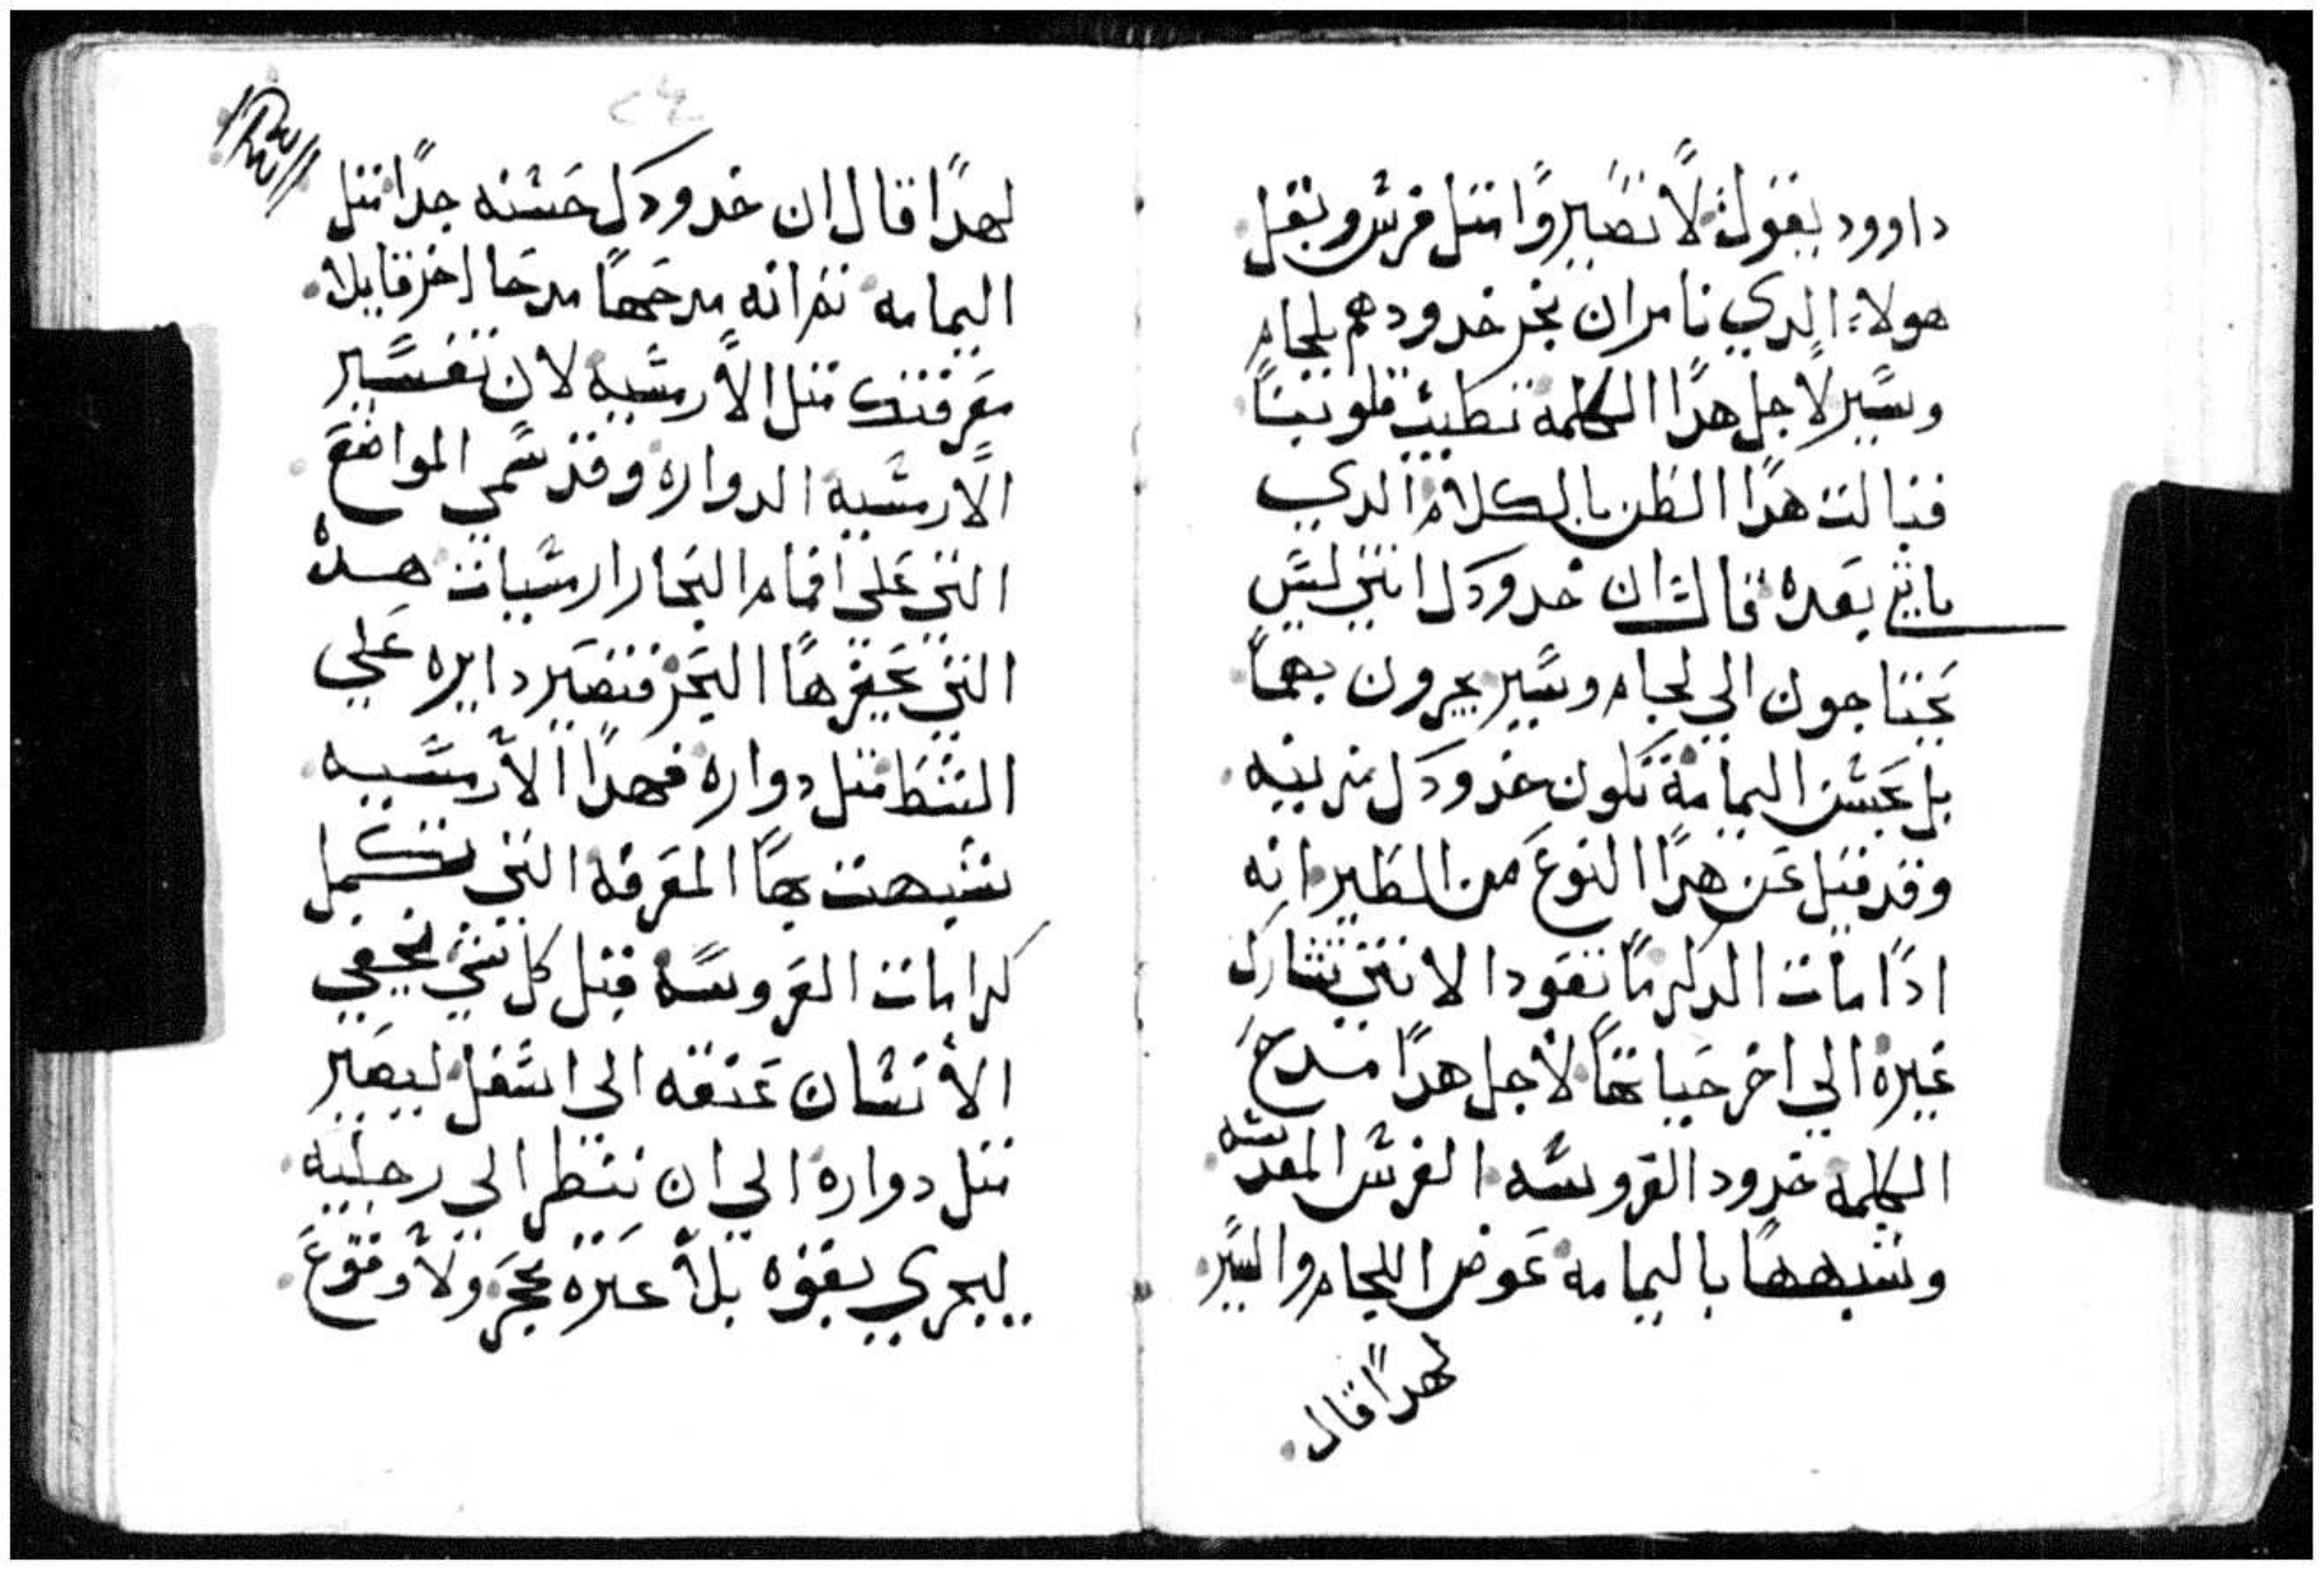 داوود يقول لا تصيروا متل فرس وبغل
هولاء الدي تامر ان تجر خدودهم بلجام
وسير لاجل هدا الكلمة تطيب قلوبنا
فبالت هدا الظن بالكلام الدي
ياتي بعده قال ان خدودك انتي ليس
تحتاجون الي لجام وسير يجرون بهما
بل بحسن اليمامة تكون خدودك مزينه
وقد قيل عن هدا النوع من الطير انه
ادا مات الدكر ما تعود الانتي تشارك
غيره الي اخر حياتها لاجل هدا مدح
الكلمه خدود العروسه الفرس المقدسه
وشبهها باليمامه عوض اللجام والسير
لهدا قال
لهدا قال ان خدودك حسنه جدا متل
اليمامه تم انه مدحها مدحا اخر قايلا
معرفتك متل الارسيه لان تفسير
الارسيه الدواره وقد سمي المواضع
التي علي افمام البحار ارسيات هده
التي يحفرها البحر فتصير دايره علي
الشط متل دواره فهدا الارسيه
شبهت بها المعرفه التي تكمل
كرامات العروسه قبل كل شي يحني
الانسان عنقه الي اسفل ليصير
متل دواره الي ان ينظر الي رجليه
ليجري بقوه بلا عتره بحجر ولا وقوع